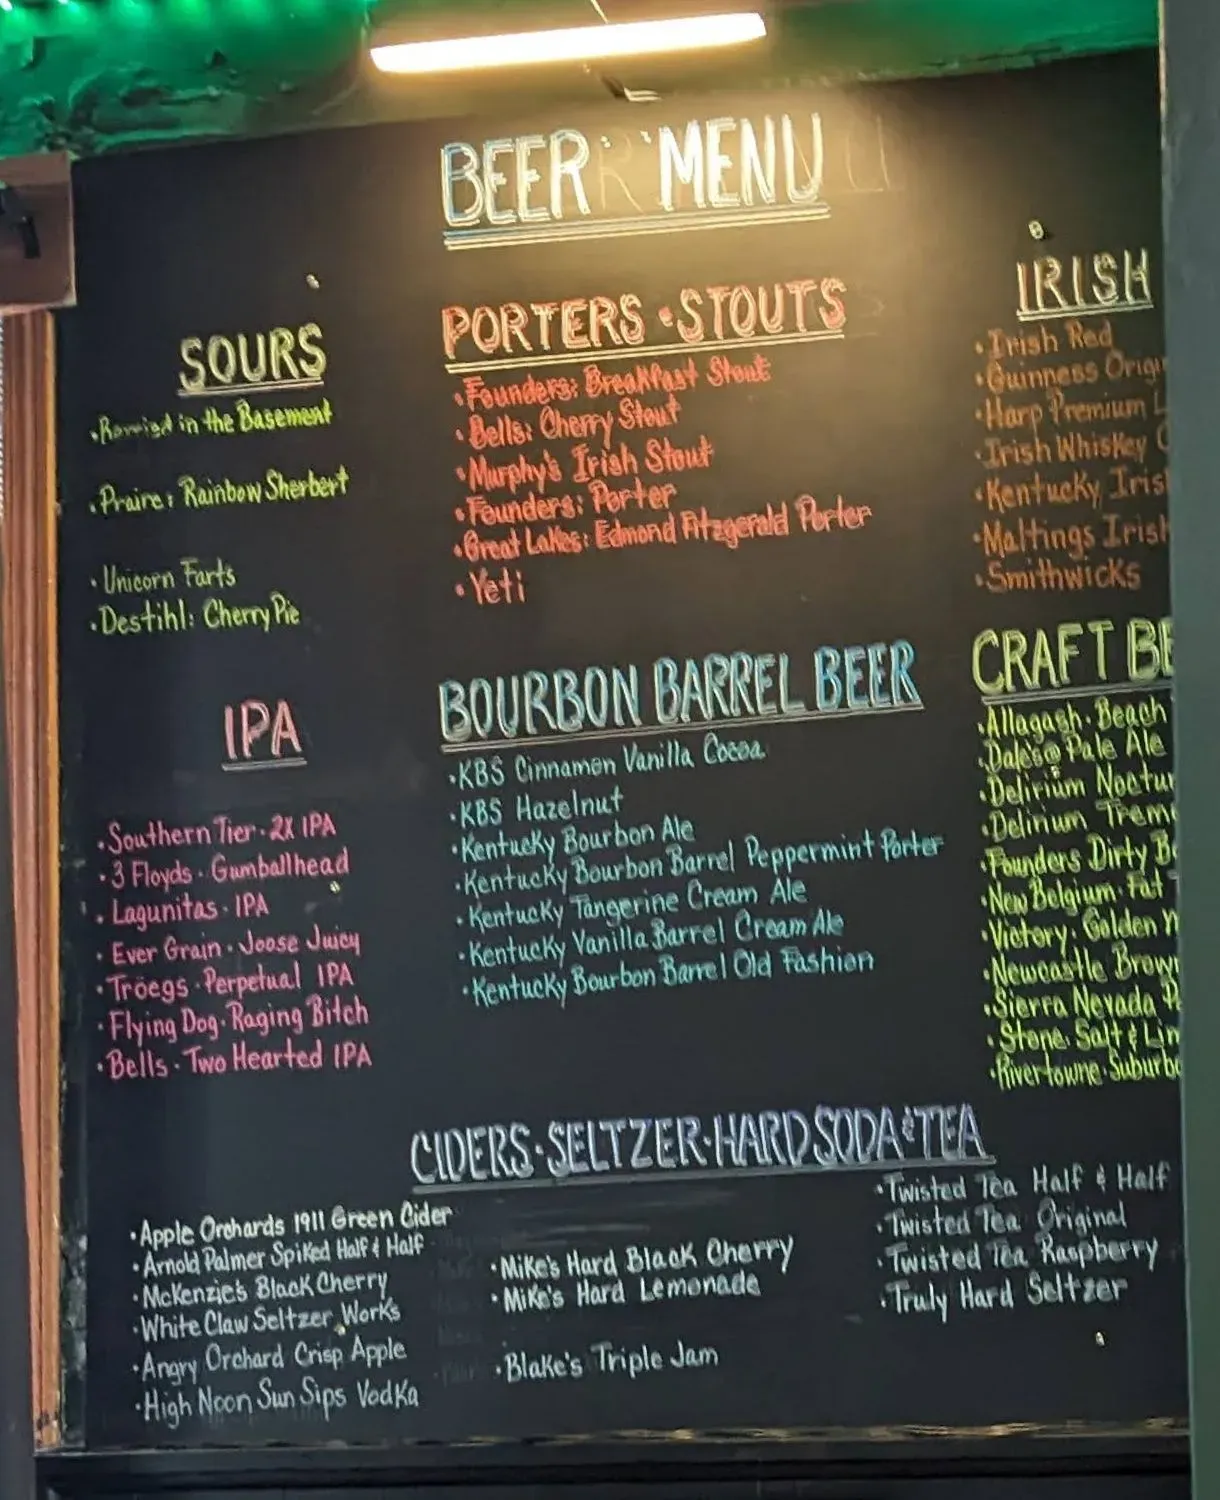 BEER MENU
SOURS
in the Basement
Praire: Rainbow Sherbert
Unicorn Farts
Destihl: Cherry Pie
IPA
Southern Tier · 2X IPA
3 Floyds · Gumballhead
Lagunitas · IPA
Ever Grain · Joose Juicy
Tröegs · Perpetual IPA
Flying Dog · Raging Bitch
Bells · Two Hearted IPA
PORTERS · STOUTS
Founders: Breakfast Stout
Bells: Cherry Stout
Murphy's Irish Stout
Founders: Porter
Great Lakes: Edmond Fitzgerald Porter
Yeti
BOURBON BARREL BEER
KBS Cinnamon Vanilla Cocoa
KBS Hazelnut
Kentucky Bourbon Ale
Kentucky Bourbon Barrel Peppermint Porter
Kentucky Tangerine Cream Ale
Kentucky Vanilla Barrel Cream Ale
Kentucky Bourbon Barrel Old Fashion
IRISH
Irish Red
Guinness Origi
Harp Premium L
Irish Whiskey
Kentucky Iris
Maltings Irish
Smithwicks
CRAFT BE
Allagash · Beach
Dale's Pale Ale
Delirium Noctur
Delirium Treme
Founders Dirty B
New Belgium · Fat T
Victory · Golden M
Newcastle Brown
Sierra Nevada P
Stone · Salt & Lim
Rivertowne · Suburb
CIDERS · SELTZER · HARD SODA & TEA
Apple Orchards 1911 Green Cider
Arnold Palmer Spiked Half & Half
McKenzie's Black Cherry
White Claw Seltzer Works
Angry Orchard Crisp Apple
High Noon Sun Sips Vodka
Mike's Hard Black Cherry
Mike's Hard Lemonade
Blake's Triple Jam
Twisted Tea Half & Half
Twisted Tea Original
Twisted Tea Raspberry
Truly Hard Seltzer